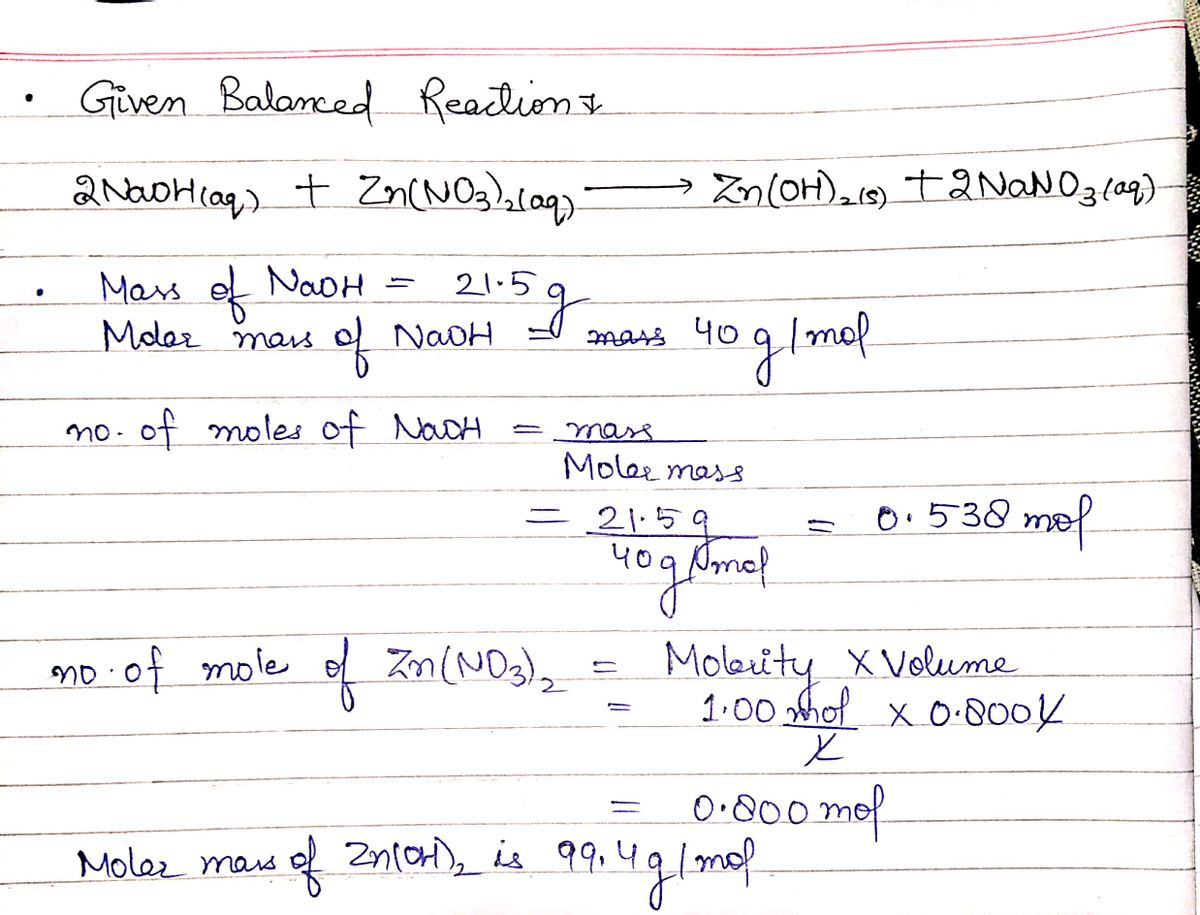 • Given Balanced Reaction :
2NaOH(aq) + Zn(NO3)2(aq) ⟶ Zn(OH)2(s) + 2NaNO3(aq)
• Mass of NaOH = 21.5 g
Molar mass of NaOH = mass 40 g/mol
no. of moles of NaOH = mass
Molar mass
= 21.5 g = 0.538 mol
40 g/mol
no. of mole of Zn(NO3)2 = Molarity × Volume
= 1.00 mol × 0.800 L
L
= 0.800 mol
Molar mass of Zn(OH)2 is 99.4 g/mol